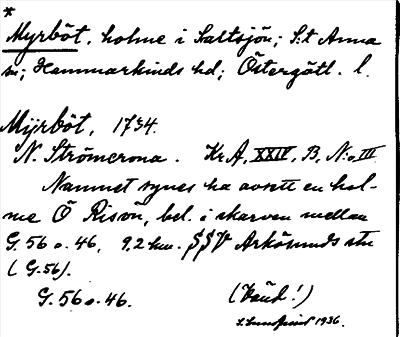 *
Myrböt, holme i Saltsjön; S:t Anna
sn; Hammarkinds hd; Östergötl. l.
Mÿrböt, 1734.
N. Strömcrona. Kr A, XXIV, B, N:o III.
Namnet synes ha avsett en hol-
me Ö Risön, bel. i skarven mellan
G. 56 o. 46, 9,2 km. SSV Arkösunds stn
(G. 56).
G. 56 o. 46. (Vänd!)
1936.